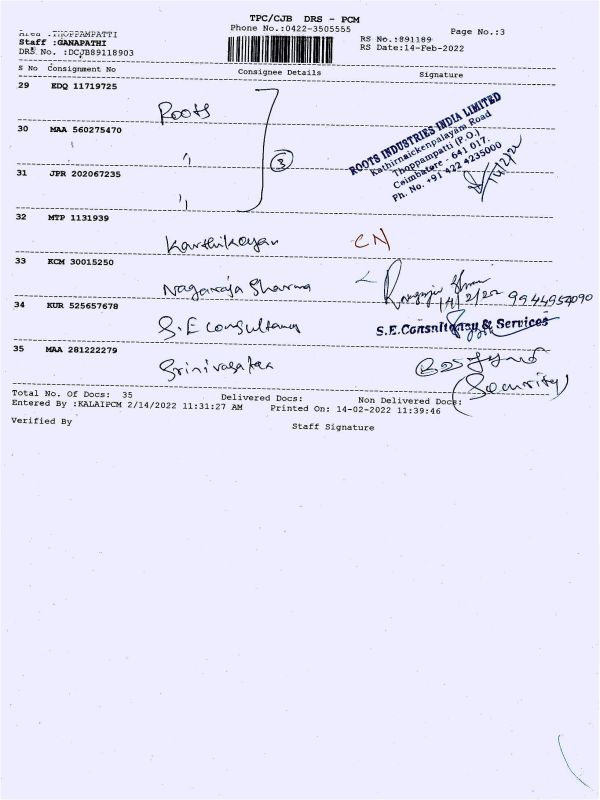 TPC/CJB DRS - PCM
Phone No.:0422-3505555
Page No.:3
Area :THOPPAMPATTI
RS No.:891189
Staff :GANAPATHI
RS Date:14-Feb-2022
DRS No. :DCJB89118903
S No Consignment No Consignee Details Signature
29 EDQ 11719725
Roots
30 MAA 560275470
"
3
31 JPR 202067235
"
ROOTS INDUSTRIES INDIA LIMITED
Kathirnaickenpalayam Road
Thoppampatti (P.O.)
Coimbatore - 641 017.
Ph. No. +91 422 4235000
32 MTP 1131939
Karthikeyan CN
33 KCM 30015250
Nagaraja Sharma
14/2/22 9944952090
34 KUR 525657678
S.E Consultancy
S.E.Consultancy & Services
35 MAA 281222279
(Security)
Total No. Of Docs: 35 Delivered Docs: Non Delivered Docs:
Entered By :KALAIPCM 2/14/2022 11:31:27 AM Printed On: 14-02-2022 11:39:46
Verified By Staff Signature